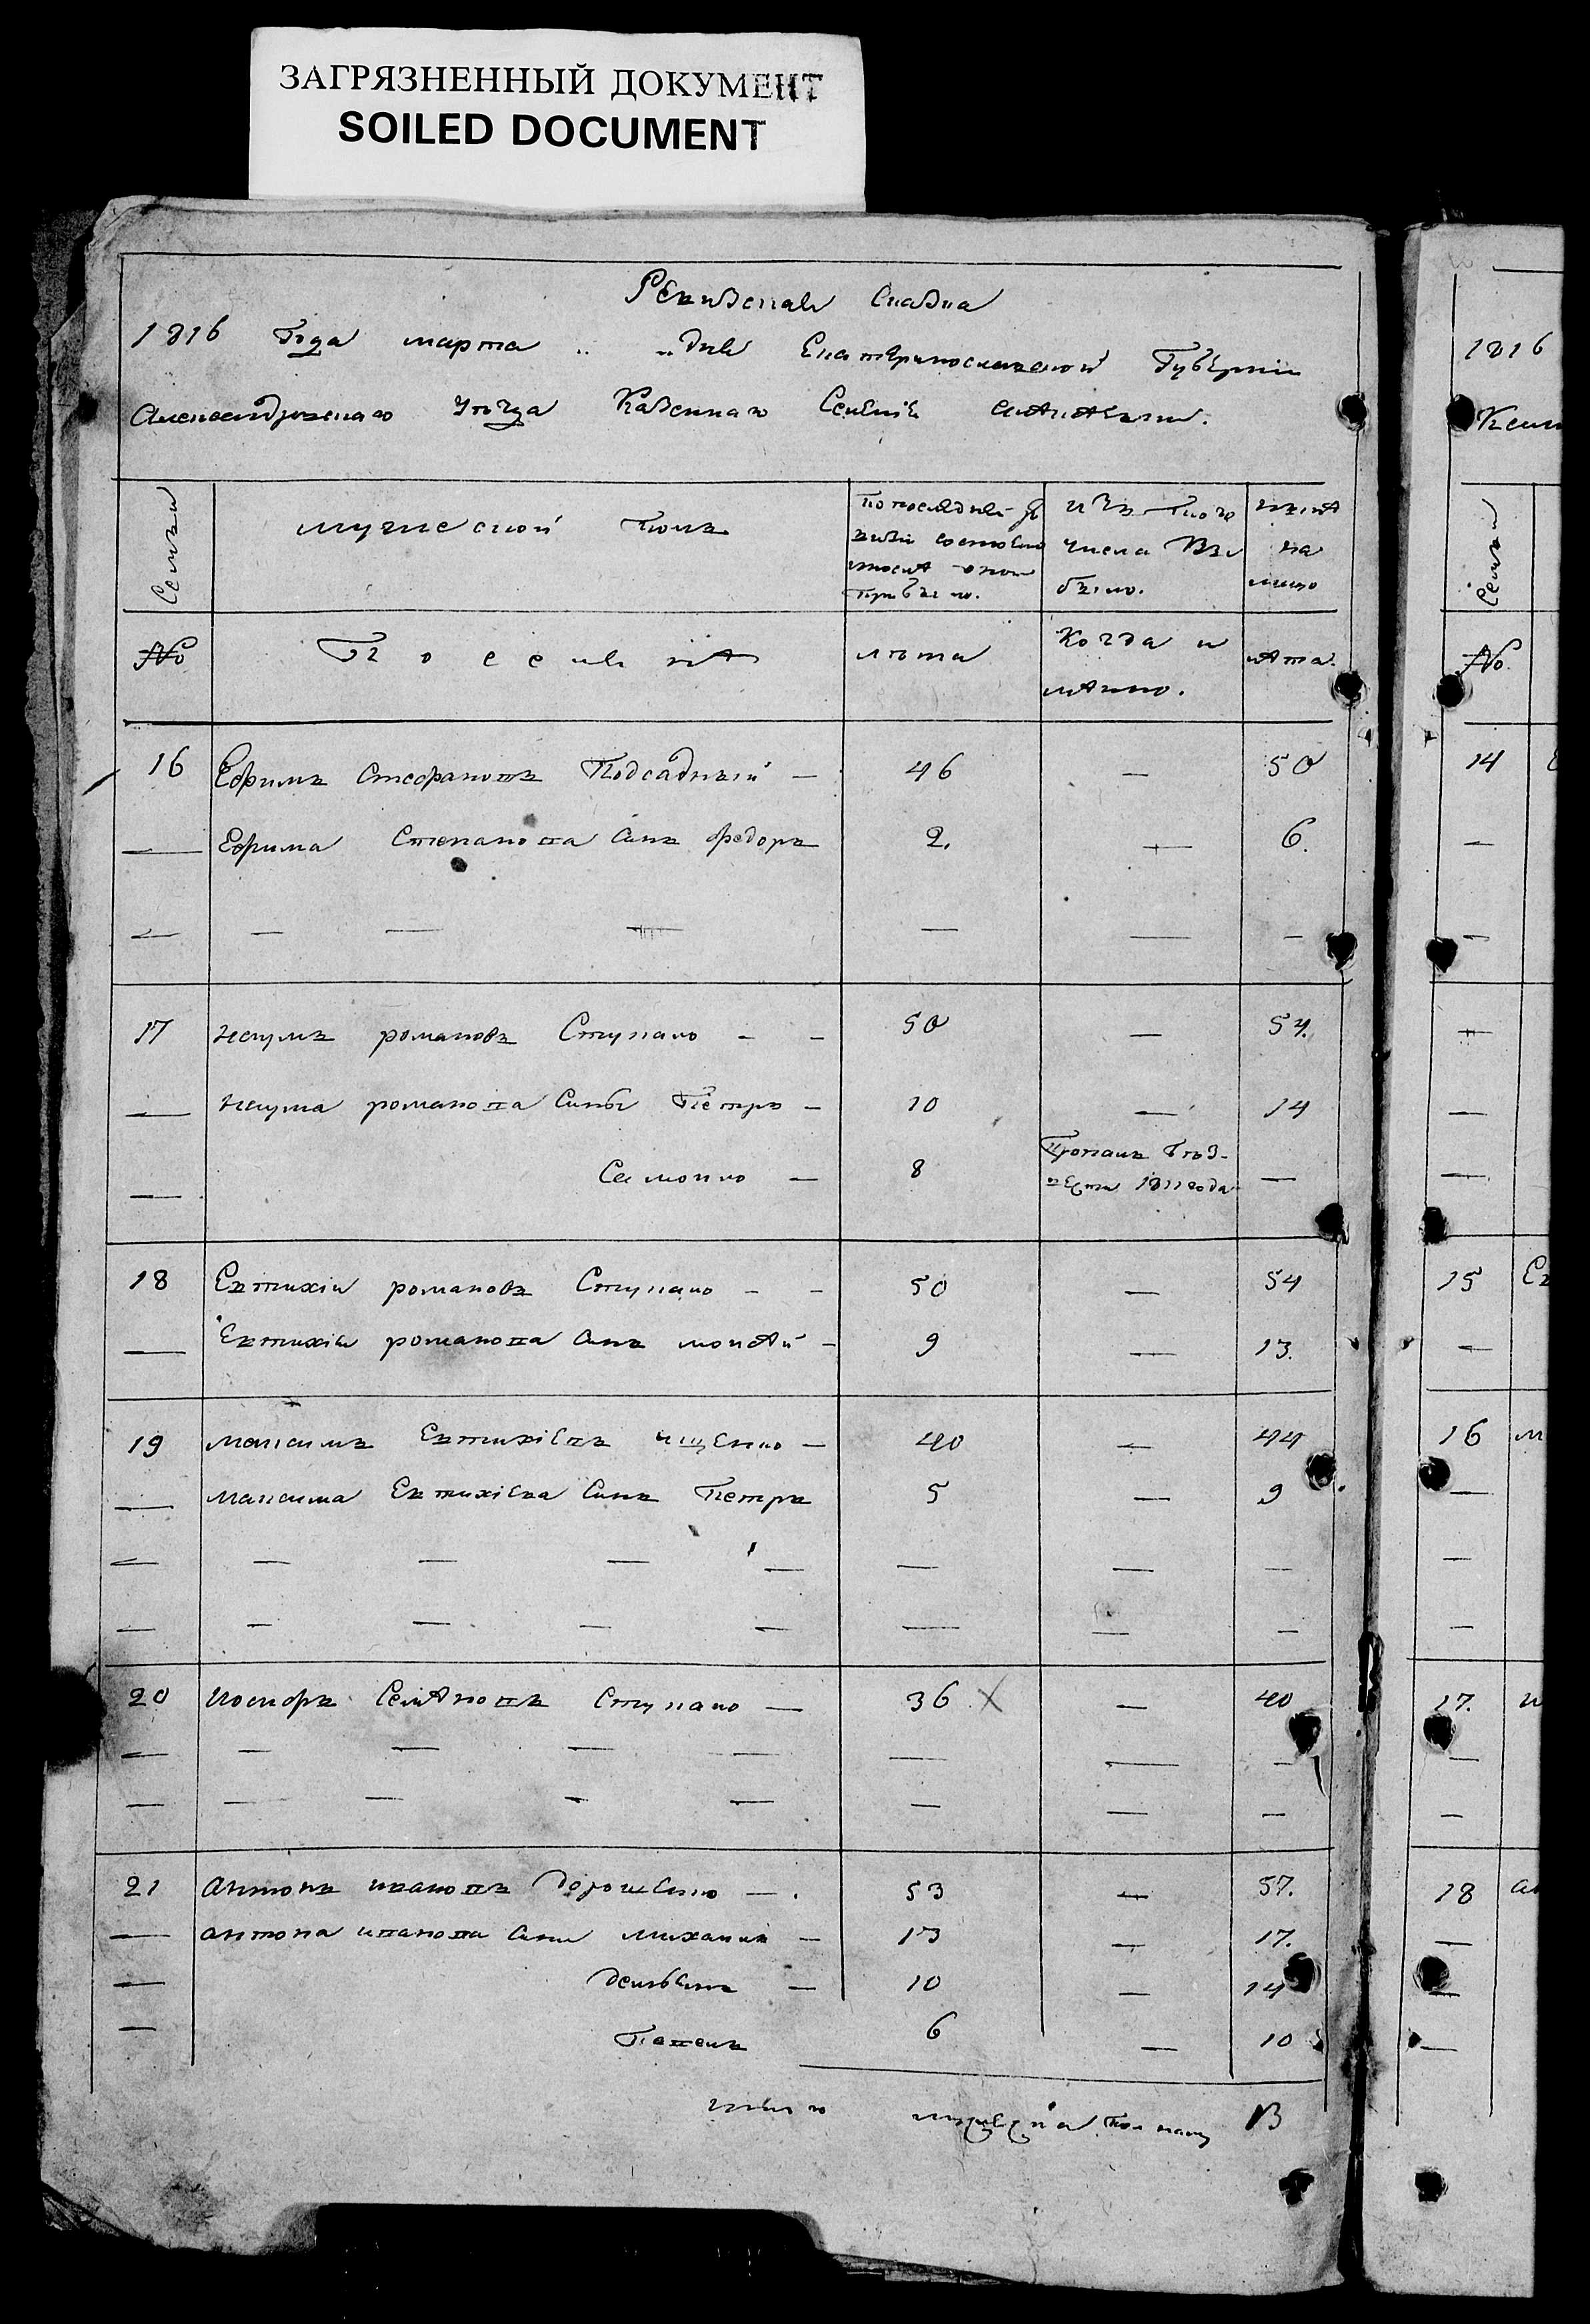 ЗАГРЯЗНЕННЫЙ ДОКУМЕНТ
SOILED DOCUMENT
Ревизская Сказка
1816 Года марта „ „дня Екатеринославской Губернiи
Александровскаго уѣзда Казеннаго Селенiя
Семьи
мужеской полъ
По последней ре
визiи состояло
и после оной
прибыло.
изъ того
числа Вы
было.
нынѣ
на
лицо
№ Поселяне лѣта Когда и лѣта.
имянно.
16 Ефимъ Стефановъ Подсадный — 46 — 50
— Ефима Степанова Сынъ Федоръ 2. — 6.
— — — — — — —
17 наумъ романовъ Ступако - - 50 — 54.
— наума романова Сыны Петръ — 10 — 14
— Самойло — 8 Пропалъ безъ
вести 1811 года —
18 Евтихiй романовъ Ступако - - 50 — 54
— Евтихiя романова Сынъ моисей — 9 — 13.
19 максимъ Евтихiевъ ищенко — 40 — 44
— максима Евтихiева Сынъ Петръ 5 — 9
— — — — — — — —
— — — — — — — —
20 Иосифъ Семеновъ Ступако — 36 X — 40
— — — — — — — —
— — — — — — — —
21 антонъ ивановъ дорошенко — . 53 — 57.
— антона иванова Сыны михаила — 13 — 17.
— демьянъ — 10 — 14
— Павелъ 6 — 10
итого мужеска пола налицо 13
1816
Семьи
№.
14
15 Ев
16 м
17. и
18 ан